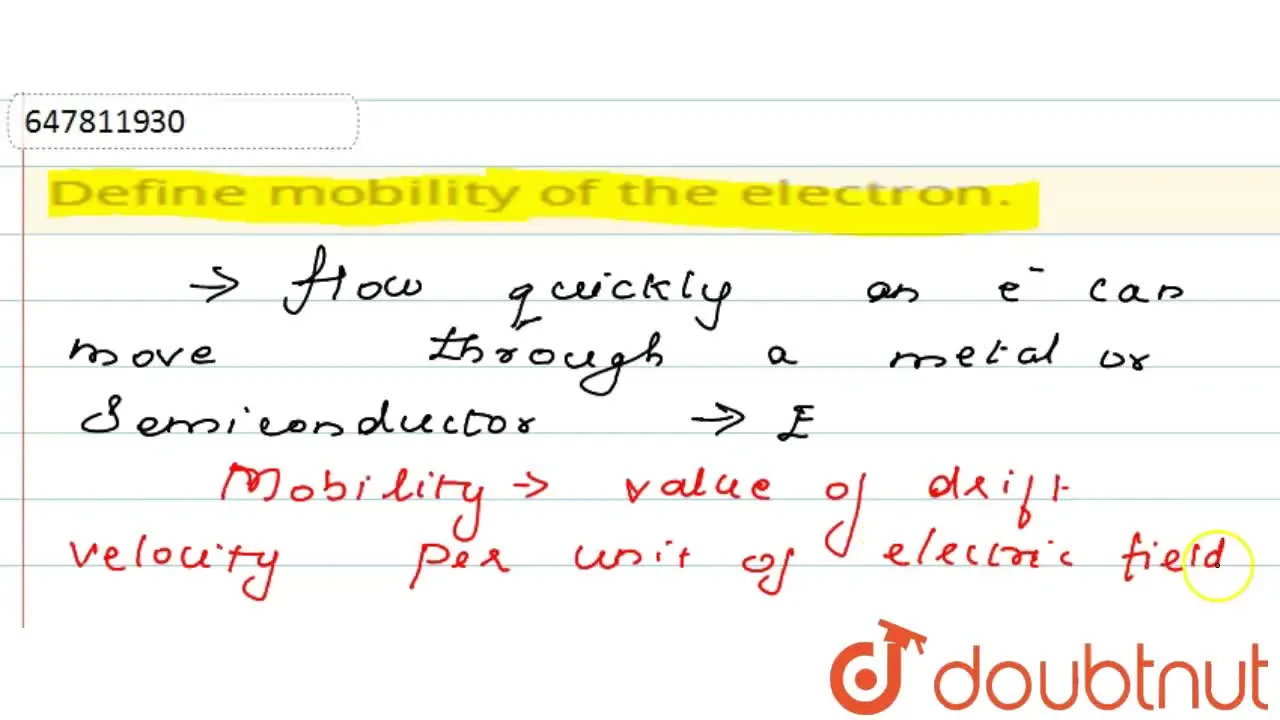 647811930
Define mobility of the electron.
→ flow quickly an e⁻ can
move through a metal or
Semiconductor → E
Mobility → value of drift
velocity per unit of electric field
doubtnut